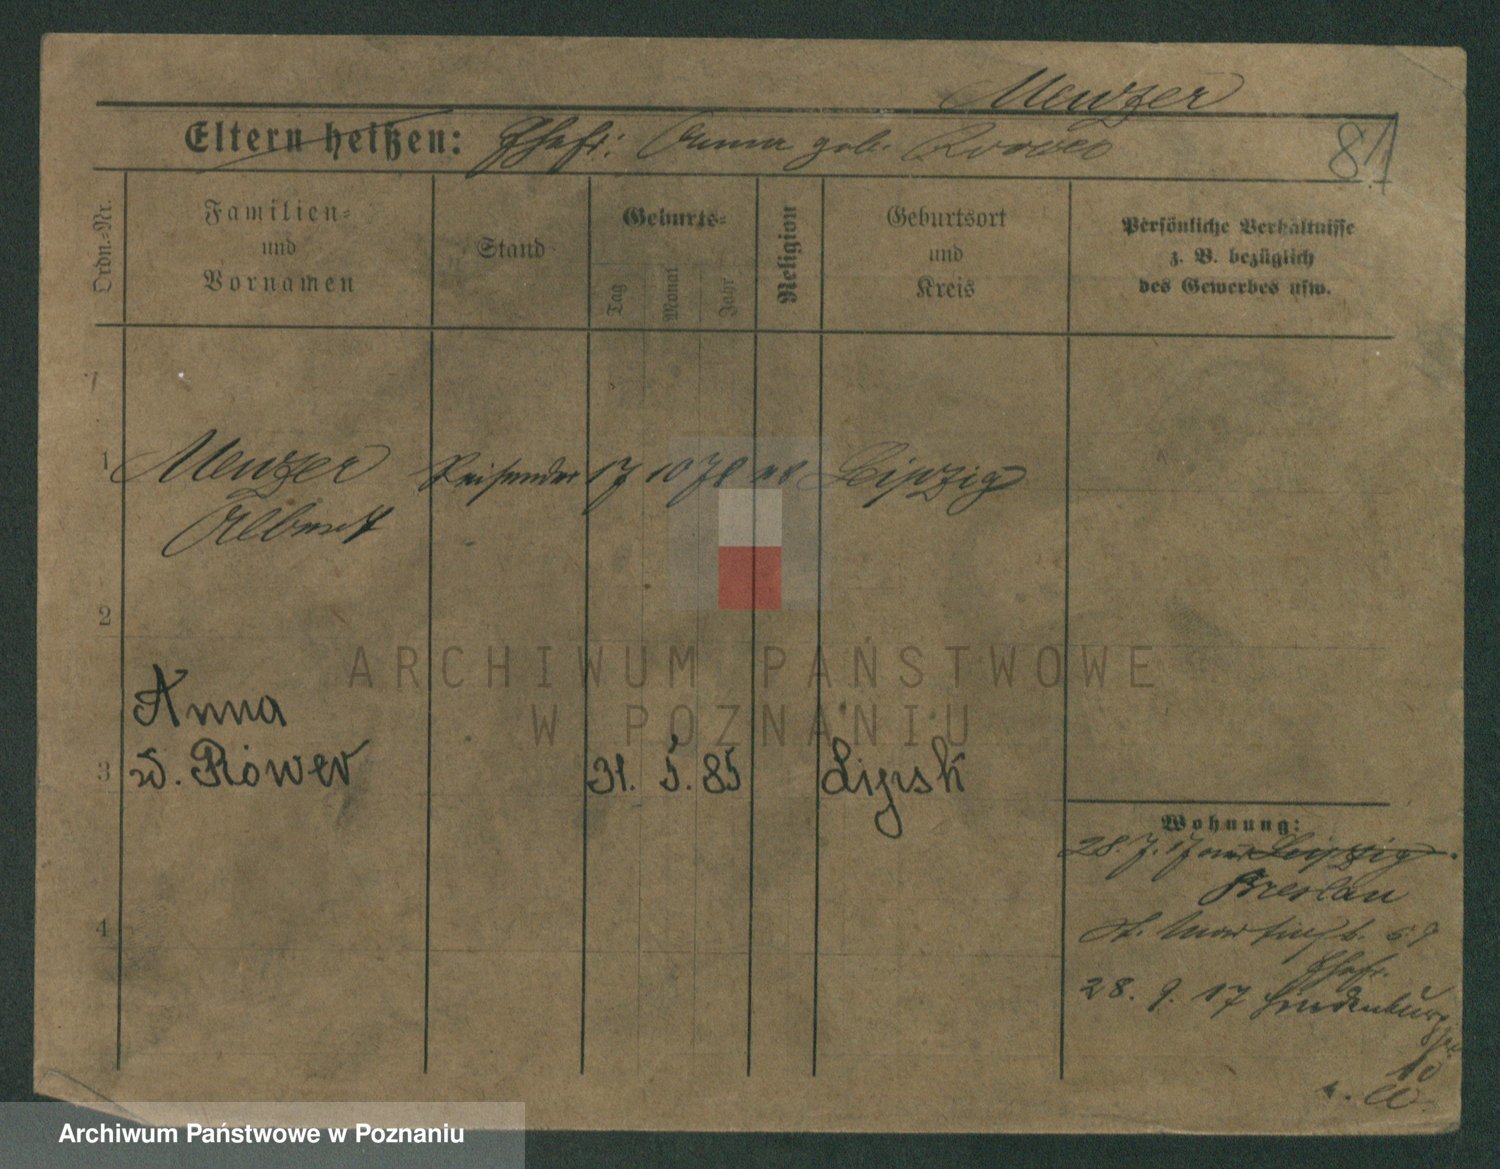 Menzer
Eltern heißen: Ehefr: Anna geb. Röwer
81
Ordn.-Nr.
Familien-
und
Vornamen
Stand
Geburts-
Tag
Monat
Jahr
Religion
Geburtsort
und
Kreis
Persönliche Verhältnisse
z. B. bezüglich
des Gewerbes usw.
1 Menzer Reisender 17 10 78 Leipzig
Albert
2
ARCHIWUM PAŃSTWOWE
W POZNANIU
Anna
3 Röwer 31. 5. 85 Lipsk
4
Wohnung:
28. 7. 17 aus Leipzig
Breslau
St. Martinstr. 69
Ehefr.
28. 9. 17 Hindenburg
10
Archiwum Państwowe w Poznaniu